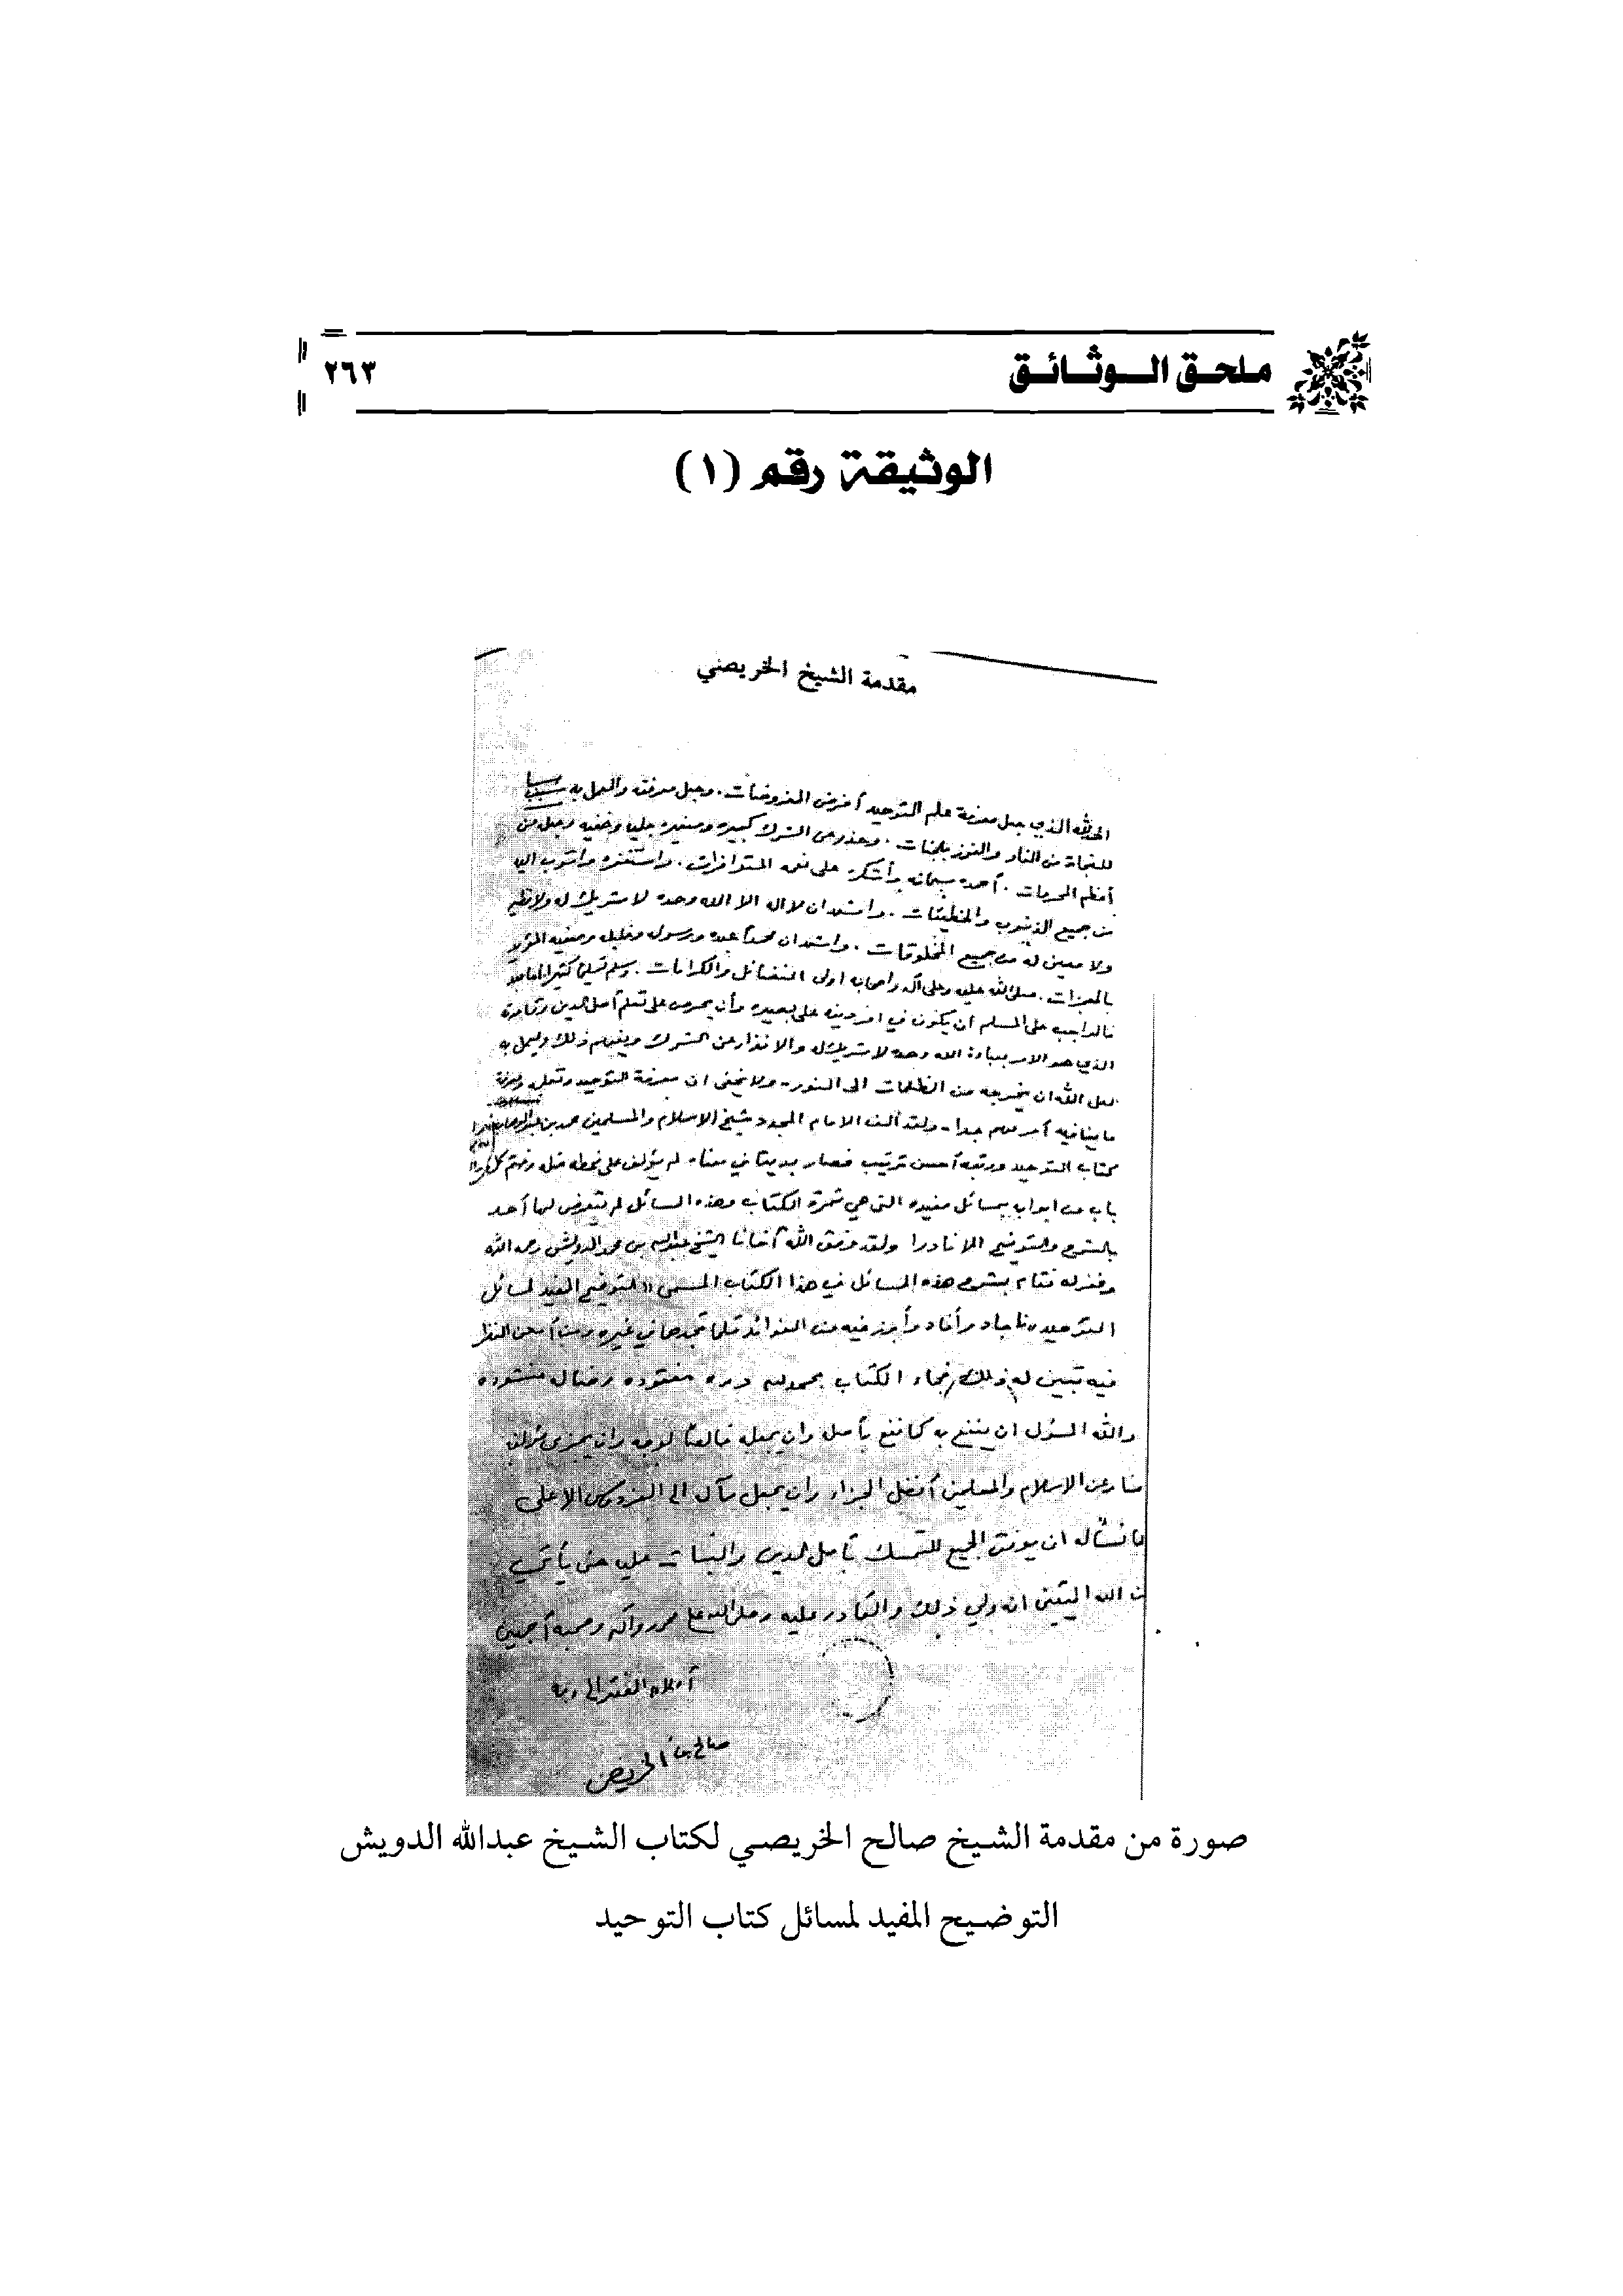 ملحق الوثائق
٢٦٣
الوثيقة رقم (١)
مقدمة الشيخ الخريصي
الحمد لله الذي جعل معرفة علم التوحيد أفرض المفروضات . وجعل معرفته والعمل به سببا
للنجاة من النار والفوز بالجنات . وحذر من الشرك كبيره وصغيره جليه وخفيه وجعله من
أعظم المحرمات . أحمده سبحانه وأشكره على نعمه المتوافرات . واستغفره واتوب اليه
من جميع الذنوب والخطيئات . واشهد ان لا اله الا الله وحده لا شريك له ولا نظير
ولا معين له من جميع المخلوقات . واشهد ان محمداً عبده ورسوله وخليله وصفيه المؤيد
بالمعجزات . صلى الله عليه وعلى آله واصحابه اولى الفضائل والكرامات . وسلم تسليما كثيرا اما بعد
فالواجب على المسلم أن يكون في امر دينه على بصيره وأن يحرص على تعلم أصل الدين وقاعدته
الذي هو الامر بعبادة الله وحده لا شريك له والانذار عن الشرك ويتفهم ذلك ويعمل به
لعل الله ان يخرجه من الظلمات الى النور - ولا يخفى ان معرفة التوحيد وتعلمه ومعرفة
ما ينافيه أمر مهم جدا - ولقد ألف الامام المجدد شيخ الاسلام والمسلمين محمد بن عبدالوهاب
كتاب التوحيد ورتبه أحسن ترتيب فصار بديعا في معناه لم يؤلف على نمطه مثله وختم كل
باب من ابوابه بمسائل مفيده التي هي ثمرة الكتاب وهذه المسائل لم يتعرض لها أحد
بالشرح والتوضيح الا نادرا ولقد وفق الله أخانا الشيخ عبدالله بن محمد الدويش رحمه الله
وغفر له فقام بشرح هذه المسائل في هذا الكتاب المسمى التوضيح المفيد لمسائل
التوحيد فأجاد وأفاد وأبرز فيه من الفوائد قلما تجدها في غيره ومن أمعن النظر
فيه تبين له ذلك فجاء الكتاب بحمد الله درة مفقوده وضالة منشوده
والله المسؤل ان ينفع به كما نفع بأصله وان يجعله خالصاً لوجهه وان يجزى مؤلفه
عنا وعن الاسلام والمسلمين أفضل الجزاء وان يجعل مآله الى الفردوس الأعلى
كما نسأله ان يوفق الجميع للتمسك بأصل الدين والثبات عليه حتى يأتي
من الله اليقين انه ولي ذلك والقادر عليه وصلى الله على محمد وآله وصحبه أجمعين
أملاه الفقير الى ربه
صالح بن أحمد الخريصي
صورة من مقدمة الشيخ صالح الخريصي لكتاب الشيخ عبدالله الدويش
التوضيح المفيد لمسائل كتاب التوحيد